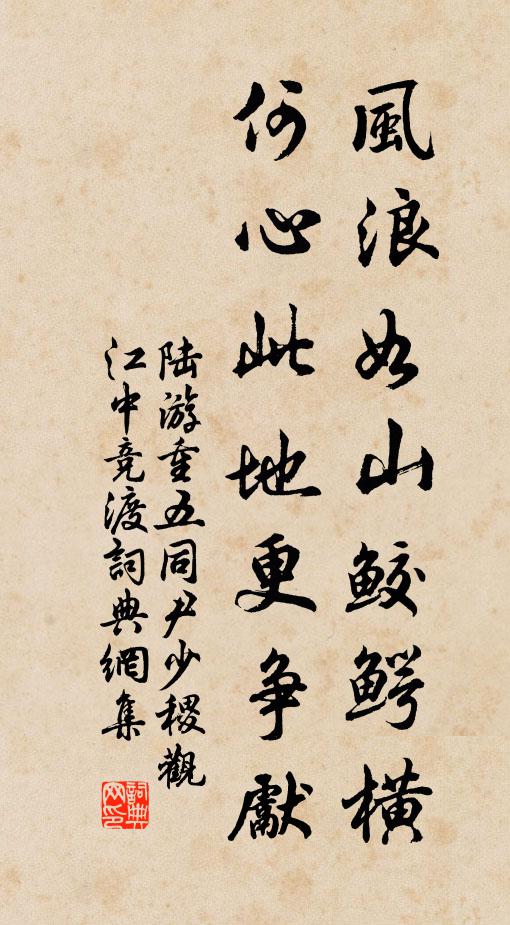 風浪如山鮫鰐橫
何心此地更争獻
陆游重五同尹少稷觀
江中竞渡詞典網集
詞典网印